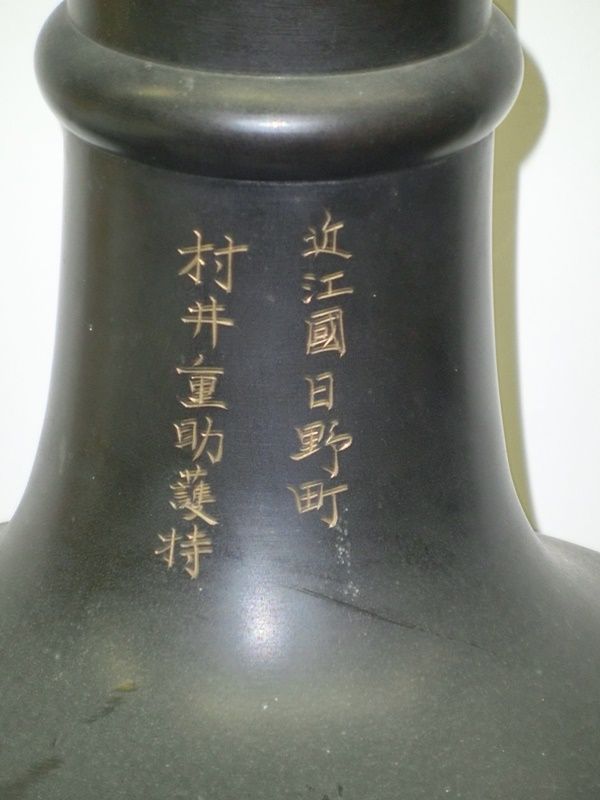 近江國日野町
村井重助護持